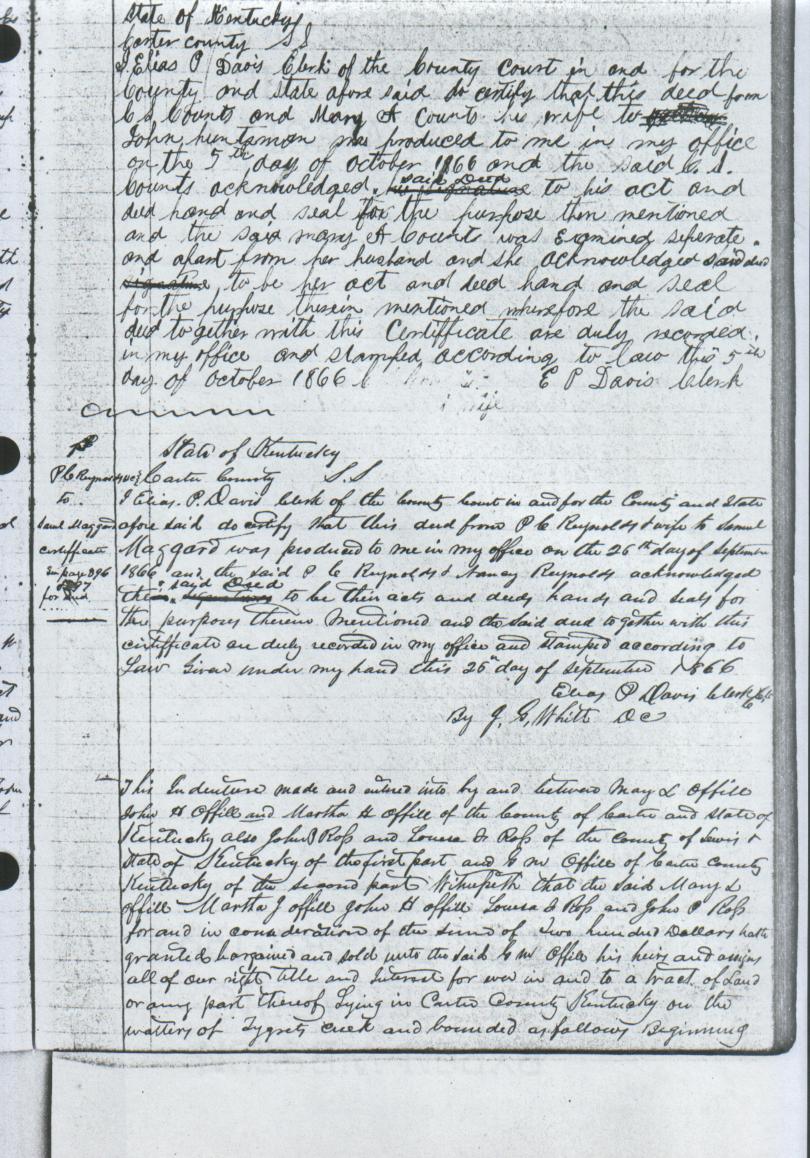 State of Kentucky
Carter county SS
I Elias P Davis Clerk of the County Court in and for the
County and State afore said do certify that this deed from
C S Counts and Mary A Counts his wife to
John huntsman was produced to me in my office
on the 5th day of October 1866 and the said C. S.
Counts acknowledged said Deed to his act and
deed hand and seal for the purpose then mentioned
and the said Mary A Counts was Examined seperate
and apart from her husband and she acknowledged said deed
signature to be her act and deed hand and seal
for the purpose therein mentioned wherefore the said
deed together with this Certificate are duly recorded
in my office and stamped according to law this 5th
day of October 1866 E P Davis Clerk
wife
P C Reynolds
to
Saml Maggard
certificate
page 396
for deed
State of Kentucky
Carter County S.S
I Elias. P. Davis Clerk of the County Court in and for the County and State
afore said do certify that this deed from P C Reynolds & wife to Samuel
Maggard was produced to me in my office on the 26th day of September
1866 and the said P C Reynolds & Nancy Reynolds acknowledged
the said Deed signatures to be their acts and deeds hands and seals for
the purposes therein mentioned and the said deed together with this
certificate are duly recorded in my office and stamped according to
Law Given under my hand this 26th day of September 1866
Elias P Davis Clerk
By J. G. White DC
This Indenture made and entered into by and between Mary L Offill
John H Offill and Martha H Offill of the County of Carter and state of
Kentucky also John P Ross and Louesa J Ross of the County of Lewis &
State of Kentucky of the first part and G W Offill of Carter County
Kentucky of the second part Witnesseth that the said Mary L
offill Martha J offill John H offill Louesa J Ross and John P Ross
for and in consideration of the sum of Two hundred Dollars hath
granted bargained and sold unto the said G W Offill his heirs and assigns
all of our right title and Interest for ever in and to a tract of Land
or any part thereof Lying in Carter County Kentucky on the
watters of Tygrets creek and bounded as follows Beginning